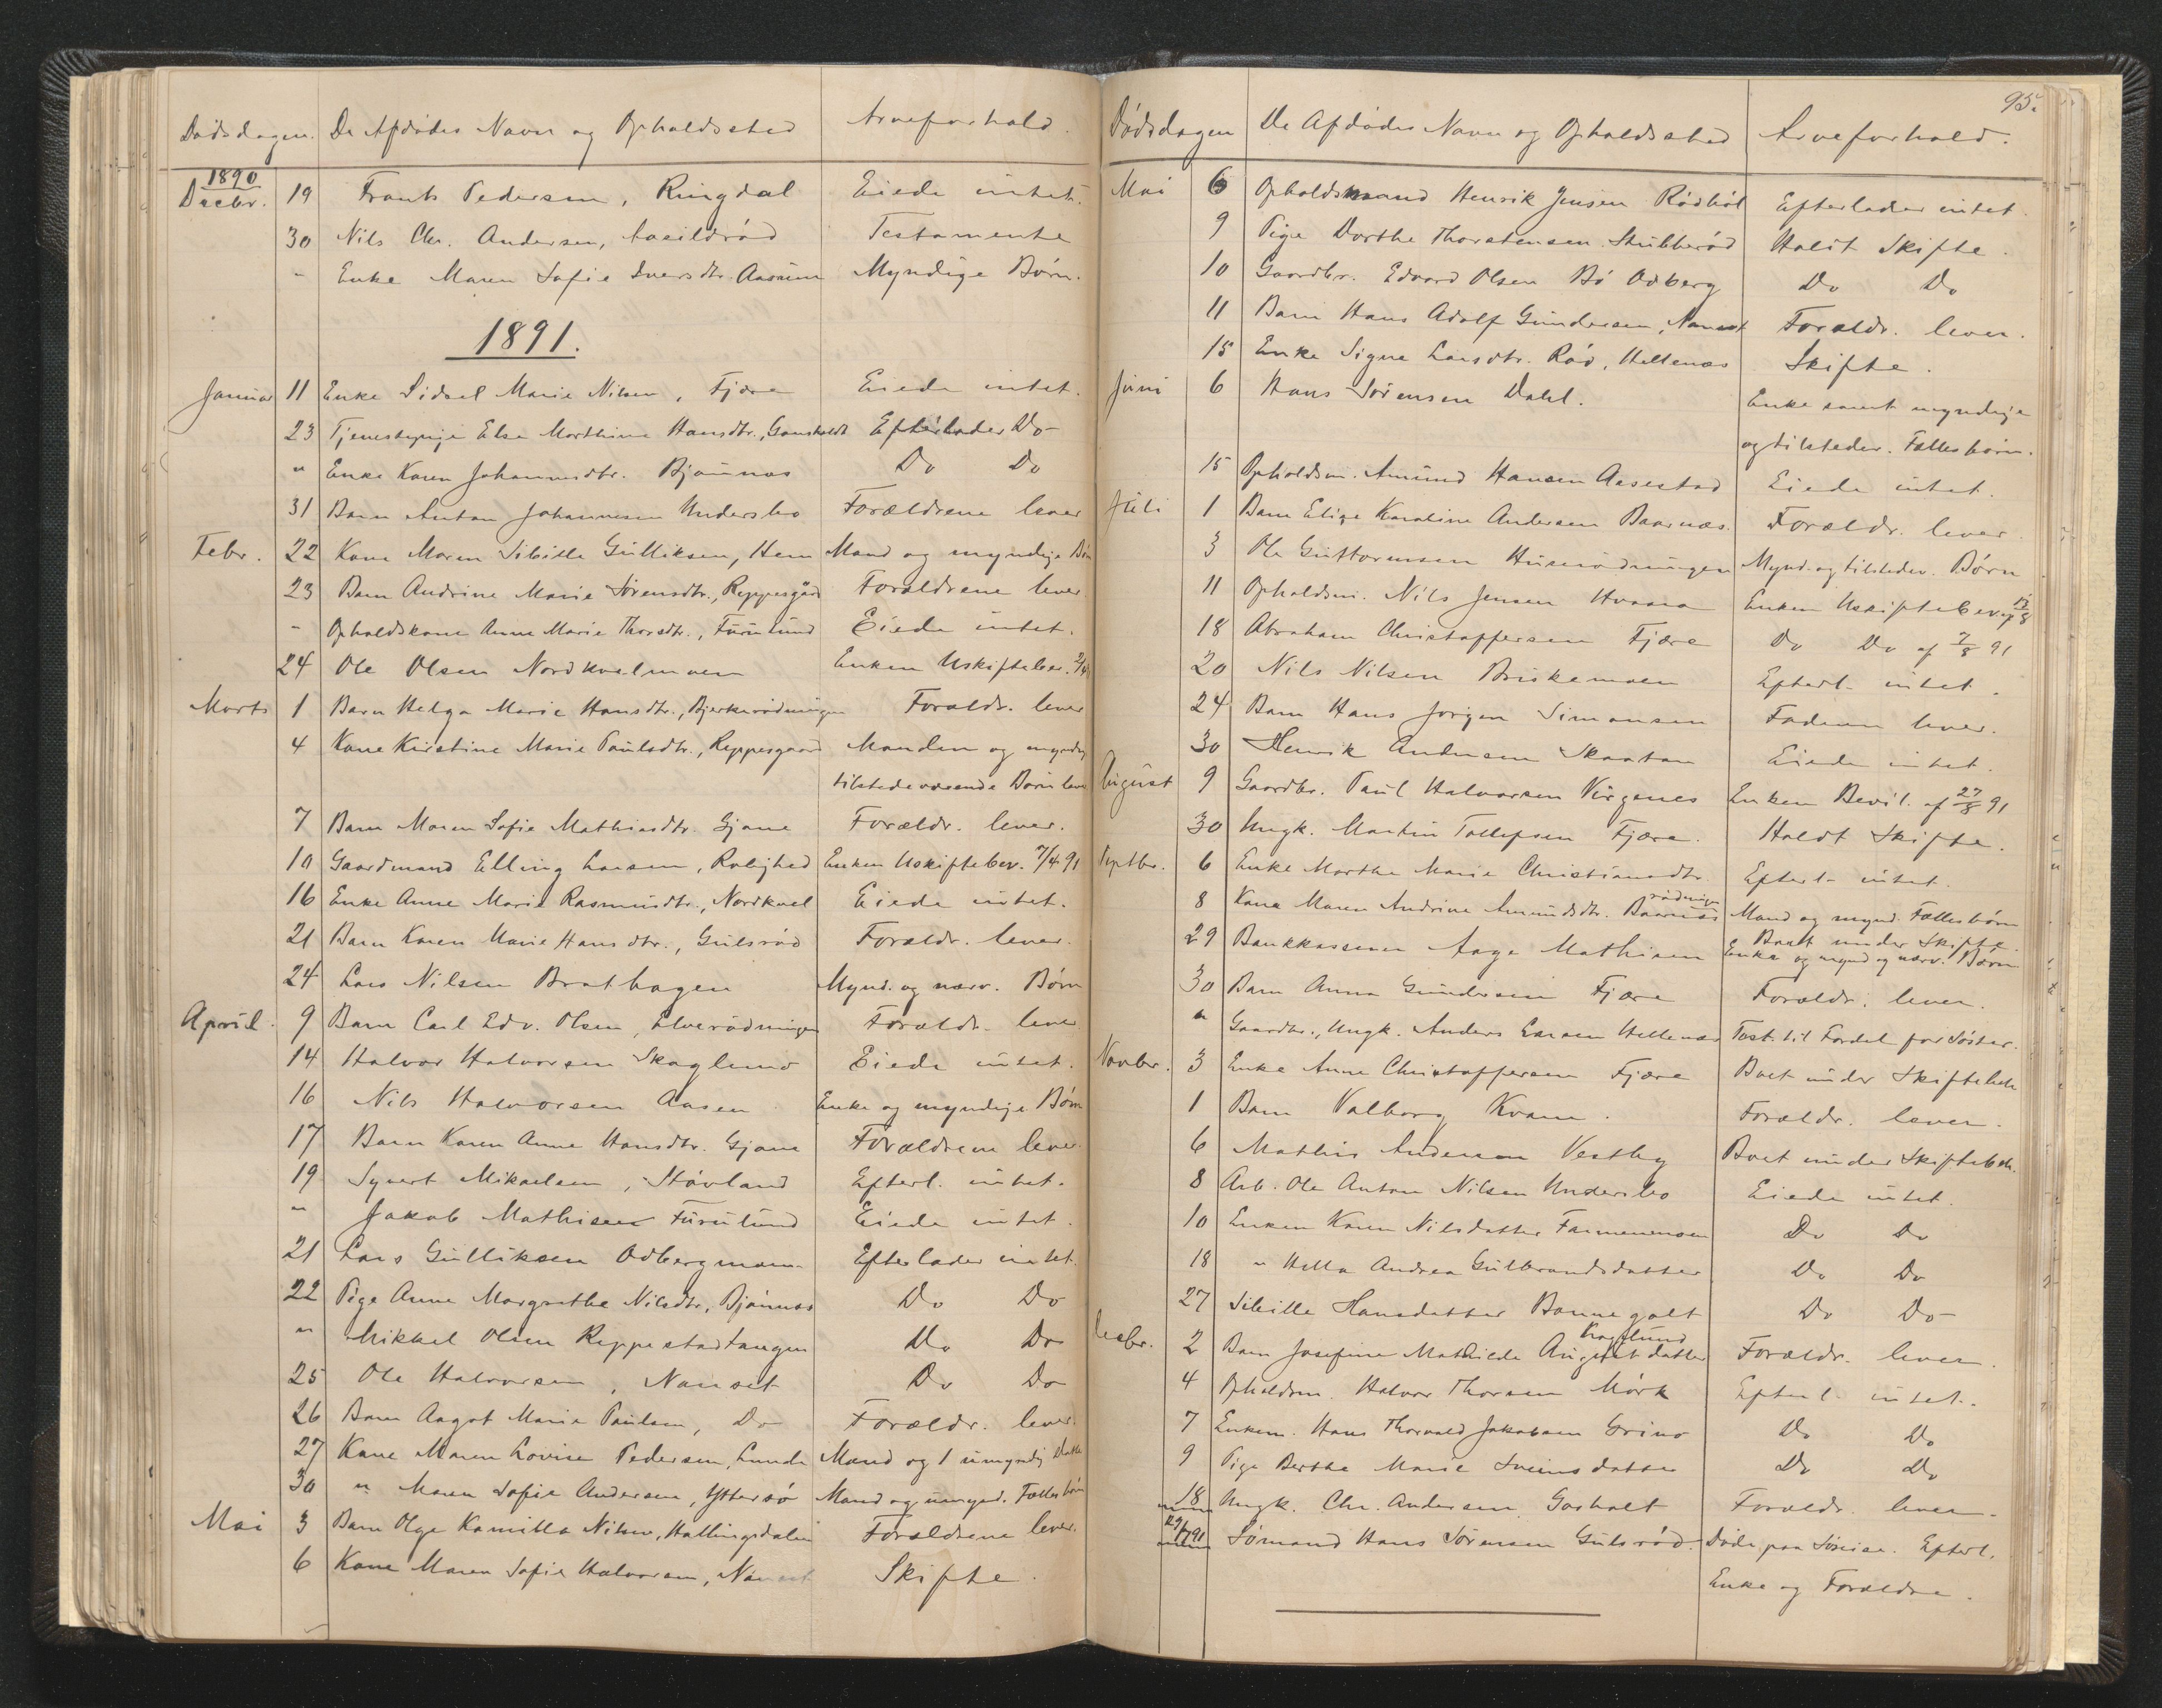 Dødsdagen. De Afdødes Navn og Opholdssted Arveforhold.
1890
Decbr. 19 Frants Pedersen, Ringdal Eiede intet.
30 Nils Chr. Andersen, Testamente
" Enke Maren Sofie Iversdtr. Aarum Myndige Børn.
1891.
Januar 11 Enke Sidsel Marie Nilsen, Fjære Eiede intet.
23 Tjenestepige Else Marthine Hansdtr., Efterlader Do
" Enke Karen Johannesdtr. Bjønnes Do Do
31 Barn Anton Johannesen Undersbo Forældrene lever
Febr. 22 Kone Maren Sibille Gulliksen, Hem Mand og myndige Børn
23 Barn Andrine Marie Sørensdtr., Reppesgård Forældrene lever
" Opholdskone Anne Marie Thorsdtr., Furulund Eiede intet.
24 Ole Olsen Nordkvelmoen Enken Uskiftebev.
Marts 1 Barn Helga Marie Hansdtr., Bjerkerødningen Forældr. lever
4 Kone Kirstine Marie Paulsdtr., Reppesgaard Manden og myndig
tilstedeværende Børn lever
7 Barn Maren Sofie Mathiasdtr. Gjone Forældr. lever.
10 Gaardmand Elling Larsen, Rolighed Enken Uskiftebev. 7/4 91
16 Enke Anne Marie Rasmusdtr., Nordkvel Eiede intet.
21 Barn Karen Marie Hansdtr., Gulsrød Forældr. lever.
24 Lars Nilsen Brathagen Mynd. og nærv. Børn
April. 9 Barn Carl Edv. Olsen, Elverødningen Forældr. lever
14 Halvor Halvorsen Skoglund Eiede intet.
16 Nils Halvorsen Aasen Enke og myndige Børn
17 Barn Karen Anne Hansdtr. Gjone Forældrene lever.
19 Syvert Mikaelsen, Støvland Efterl. intet.
" Jakob Mathisen Furulund Eiede intet.
21 Lars Gulliksen Odbergmoen Efterlader intet.
22 Pige Anne Margrethe Nilsdtr., Bjønnes Do Do
" Mikkel Olsen Reppestadtangen Do Do
25 Ole Halvorsen, Nanset Do Do
26 Barn Aagot Marie Paulsen, Do Forældr. lever.
27 Kone Maren Lovise Pedersen, Lunde Mand og 1 umyndig Datter
30 " Maren Sofie Andersen, Yttersø Mand og umynd. Fællesbørn
Mai 3 Barn Olga Kamilla Nilsen, Hallingsdalen Forældrene lever.
6 Kone Maren Sofie Halvorsen, Nanset Skifte.
95.
Dødsdagen De Afdødes Navn og Opholdssted Arveforhold.
Mai 6 Opholdsmand Henrik Jensen Rødbøl Efterlader intet.
9 Pige Dorthe Thorstensen Stubberød Holdt Skifte.
10 Gaardbr. Edvard Olsen Bø Odberg Do Do
11 Barn Hans Adolf Gundersen, Nanset Forældr. lever.
15 Enke Signe Larsdtr. Rød, Hellenæs Skifte.
Juni 6 Hans Sørensen Dahl. Enke samt myndige
og tilsteder. Fællesbørn.
15 Opholdsm. Amund Hansen Aasestad Eiede intet.
Juli 1 Barn Elise Karoline Andersen Baarnæs. Forældr. lever.
3 Ole Guttormsen Husrødningen Mynd. og tilsteder. Børn
11 Opholdsm. Nils Jensen Hvaara Enken Uskiftebev. af
18 Abraham Christoffersen Fjære Do Do af 7/8 91
20 Nils Nilsen Briskemoen Efterl. intet.
24 Barn Hans Jørgen Simonsen Faderen lever.
30 Henrik Andersen Skaatan Eiede intet.
August 9 Gaardbr. Paul Halvorsen Virgenes Enken Bevil. af 27/8 91
30 Ungk. Martin Tollefsen Fjære. Holdt Skifte.
Septbr. 6 Enke Marthe Marie Christiansdtr. Efterl. intet.
8 Kone Maren Andrine Amundsdtr. Baarnæs rødningen Mand og mynd. Fællesbørn
Boet under Skifte.
29 Bankkasserer Aage Mathisen Enke og mynd og nærv. Børn
30 Barn Anna Gundersen Fjære Forældr. lever.
" Gaardbr., Ungk. Anders Larsen Hellenæs Test. til Fordel for Søster.
Novbr. 3 Enke Anne Christoffersen Fjære Boet under Skiftebeh.
1 Barn Valborg Kvam. Forældr. lever.
6 Mathis Andersen Vestby Boet under Skiftebeh.
8 Arb. Ole Anton Nilsen Undersbo Eiede intet.
10 Enken Karen Nilsdatter Farmenmoen Do Do
18 " Hella Andrea Gulbrandsdatter Do Do
27 Sibille Hansdatter Bonnegolt Do Do
Decbr. 2 Barn Josefine Mathilde Augustdatter Skoglund Forældr. lever.
4 Opholdsm. Halvor Thorsen Mørk Efterl. intet.
7 Enkem. Hans Thorvald Jakobsen Grinø Do Do
9 Pige Berthe Marie Sveinsdatter Do Do
18 Ungk. Chr. Andersen Gosholt Forældr. lever.
29/7 91 Sømand Hans Sørensen Gulsrød. Døde paa Søreise. Efterl.
Enke og Forældre.